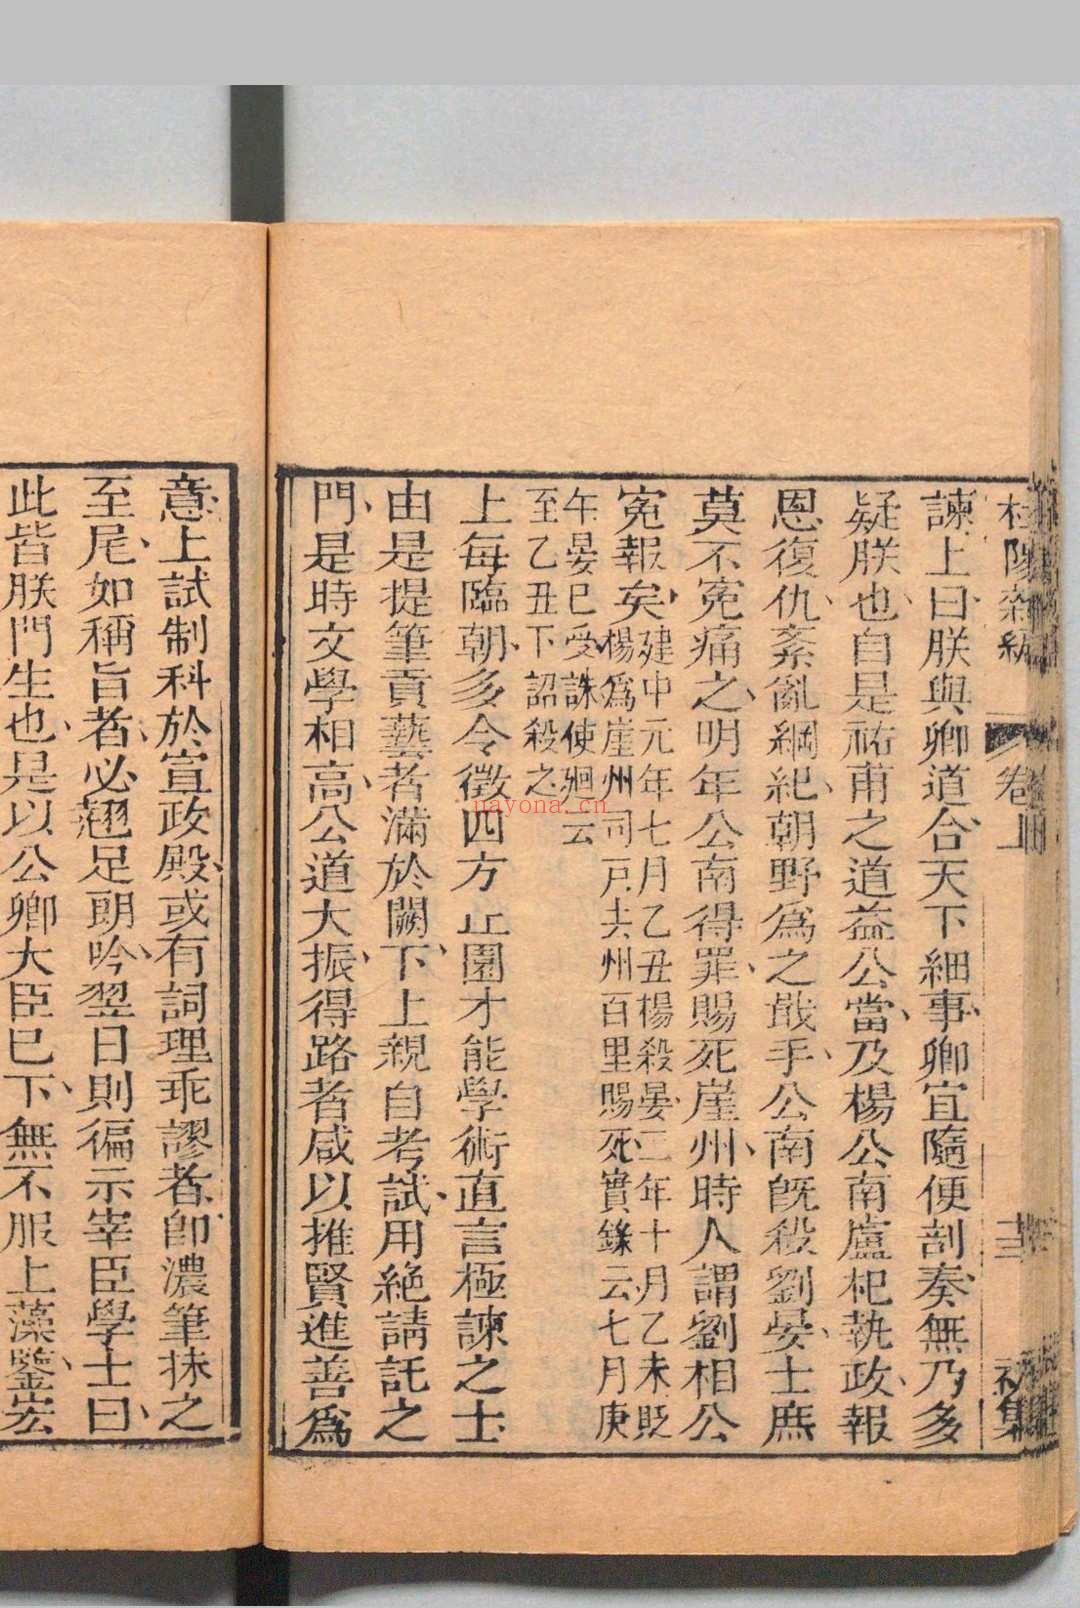 杜陽雜編 卷上 十三 初集
諫上曰朕與卿道合天下細事卿宜隨便剖奏無乃多
疑朕也自是祐甫之道益公當及楊公南盧杞執政報
恩復仇紊亂綱紀朝野爲之戢手公南旣殺劉晏士庶
莫不寃痛之明年公南得罪賜死崖州時人謂劉相公
寃報矣建中元年七月乙丑楊殺晏二年十月乙未貶
楊爲崖州司戸去州百里賜死實錄云七月庚
午晏已受誅使廻云
至乙丑下詔殺之
上每臨朝多令徵四方丘園才能學術直言極諫之士
由是提筆貢藝者滿於闕下上親自考試用絶請託之
門是時文學相高公道大振得路者咸以推賢進善爲
意上試制科於宣政殿或有詞理乖謬者卽濃筆抹之
至尾如稱旨者必翹足朗吟翌日則徧示宰臣學士曰
此皆朕門生也是以公卿大臣已下無不服上藻鑒宏
nayona.cn